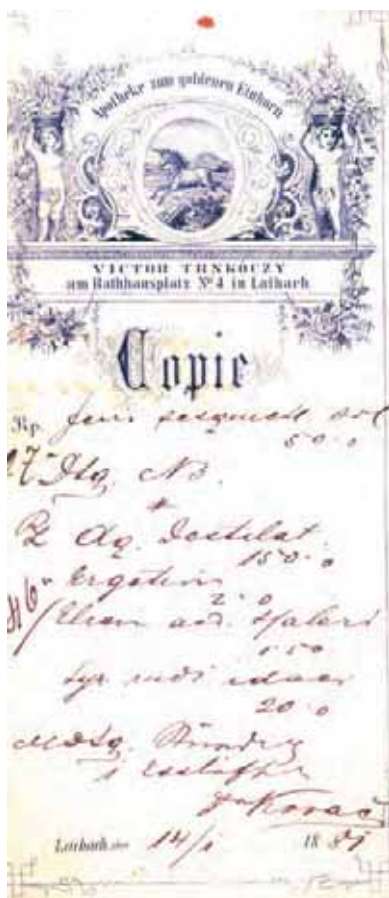 Apotheke zum goldenen Einhorn
VICTOR TRNKOCZY
am Rathhausplatz No 4 in Laibach
Copie
Rp.
50.0
Dtg. N3.
Rz Aq. destilat.
150.0
Ergotin
2.0
Elix. aci. Halleri
1.50
Syr. rubi idaei
20.0
MDtg.
1 Esslöffel
Dr Kovač
Laibach, den 14/1 18